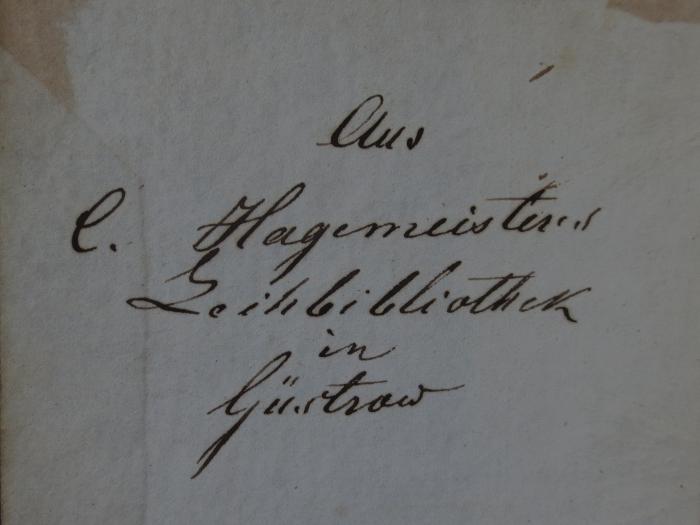 Aus
C. Hagemeisters
Leihbibliothek
in
Güstrow